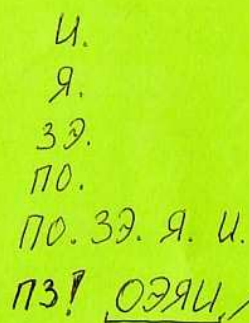 И.
Я.
ЗЭ.
ПО.
ПО. ЗЭ. Я. И.
ПЗ! ОЭЯИ,